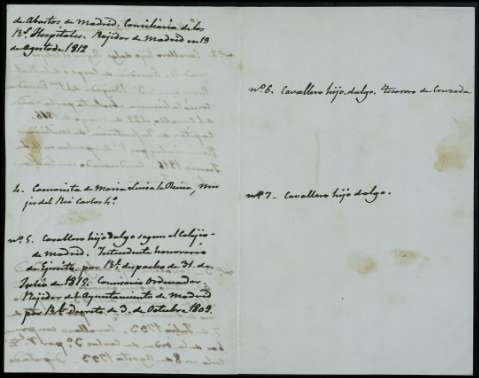 de Abastos de Madrid. Conciliario de los
Rs. Hospitales. Rejidor de Madrid en 19
de Agosto de 1812
4. Camarista de Maria Luisa la Reina, Mu-
jer del Rei Carlos 4º
nº. 5. Cavallero hijo dalgo segun el Colejio
de Madrid. Intendente honorario
de Ejército por Rl. despacho de 31. de
Julio de 1815. Comisario Ordenador
Rejidor del Ayuntamiento de Madrid
por Rl. Decreto de 3. de Octubre 1803.
nº. 6. Cavallero hijo dalgo. Tesorero de Cruzada
nº. 7. Cavallero hijo dalgo.